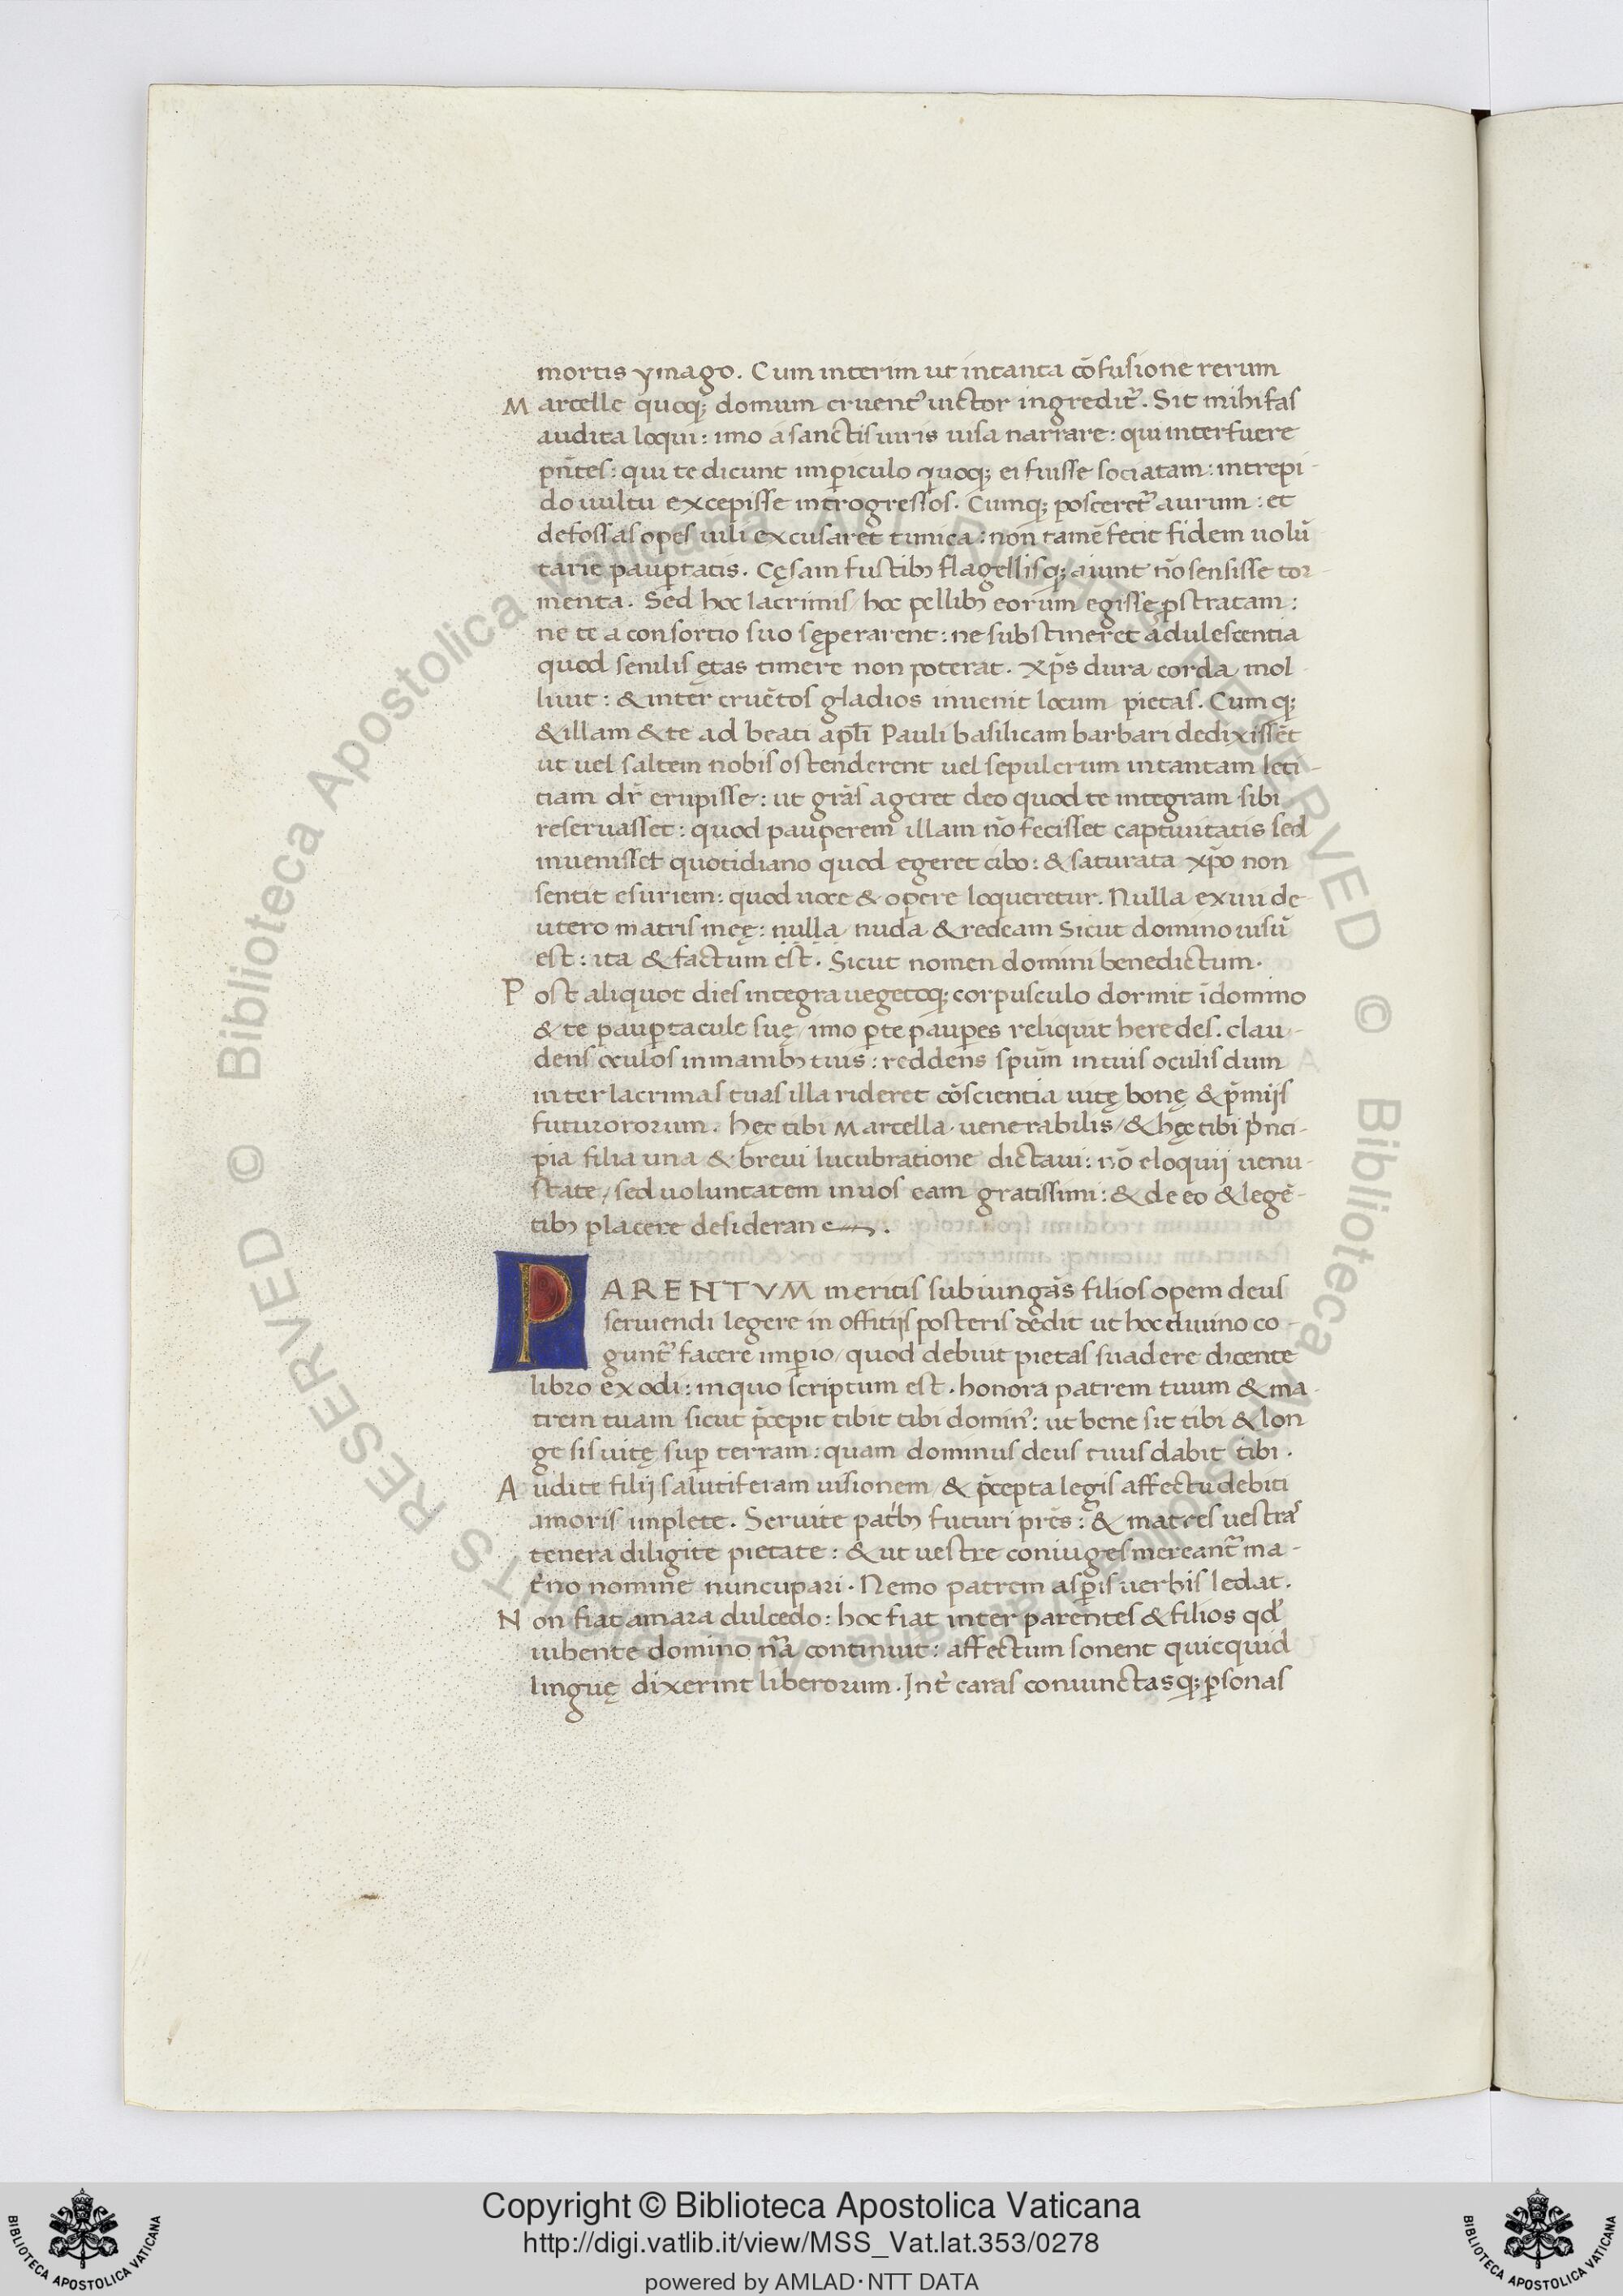 mortis ymago. Cum interim ut intanta cōfusione rerum
Marcelle quoq; domum cruent᾽ uictor ingredit᷑. Sit mihi fas
audita loqui: imo a sanctis uiris uisa narrare: qui interfuere
pn̄tes: qui te dicunt imꝑiculo quoq; ei fuisse sociatam: intrepi-
do uultu excepisse introgressos. Cumq; posceret᷑ aurum: et
defossas opes uili excusaret tunica: non tamē fecit fidem uolū
tarie pauꝑtatis. Cęsam fustibꝫ flagellisq; aiunt nō sensisse tor-
menta. Sed hoc lacrimis/ hoc pellibꝫ eorum egisse ꝓstratam:
ne te a consortio suo sęperarent: ne substineret adulescentia
quod senilis ętas timere non poterat. xp̄s dura corda mol
liuit: & inter cruētos gladios inuenit locum pietas. Cumq;
& illam & te ad beati apl̄i Pauli basilicam barbari dedixissēt
ut uel saltem nobis ostenderent uel sepulcrum in tantam leti-
tiam dr̄ erupisse: ut grās ageret deo quod te integram sibi
reseruasset: quod pauperem illam nō fecisset captiuitatis sed
inuenisset quotidiano quod egeret cibo: & saturata xp̄o non
sentit esuriem: quod uoce & opere loqueretur. Nulla exiui de
utero matris meę: nulla nuda & redeam Sicut domino uisū
est: ita & factum est. Sicut nomen domini benedictum.
Post aliquot dies integra uegetoq; corpusculo dormit ī domino
& te pauꝑtacule suę/ imo ꝑ te pauꝑes reliquit heredes. clau-
dens oculos in manibꝫ tuis: reddens spūm in tuis oculis dum
inter lacrimas tuas illa rideret cōscientia uitę bonę & p̄mijs
futurororum. hęc tibi Marcella uenerabilis/ & hęc tibi pͥnci-
pia filia una & breui lucubratione dictaui: nō eloquij uenu-
state/ sed uoluntatem in uos eam gratissimi: & de eo & legē-
tibꝫ placere desideran e.
PARENTVM meritis subiungās filios opem deus
seruiendi legere in offitijs posteris dedit ut hoc diuino co-
gunt᷑ facere imꝑio/ quod debuit pietas suadere dicente
libro exodi: in quo scriptum est. honora patrem tuum & ma-
trem tuam sicut p̄cepit tibit tibi domin᾽: ut bene sit tibi & lon
ge sis uitę suꝑ terram: quam dominus deus tuus dabit tibi.
Audite filij salutiferam uisionem/ & p̄cepta legis affectu debiti
amoris implete. Seruite patͥbꝫ futuri pr̄es: & matres uestras
tenera diligite pietate: & ut uestre coniuges mereant᷑ ma-
t᾽no nomine nuncupari. Nemo patrem asꝑis uerbis ledat.
Non fiat amara dulcedo: hoc fiat inter parentes & filios qd᾽
iubente domino nr̄a continuit: affectum sonent quicquid
linguę dixerint liberorum. Int᾽ caras coniunctasq; ꝑsonas
Copyright © Biblioteca Apostolica Vaticana
http://digi.vatlib.it/view/MSS_Vat.lat.353/0278
powered by AMLAD·NTT DATA
BIBLIOTECA APOSTOLICA VATICANA
BIBLIOTECA APOSTOLICA VATICANA
© Biblioteca Apostolica Vaticana ALL RIGHTS RESERVED
© Biblioteca Apostolica Vaticana ALL RIGHTS RESERVED